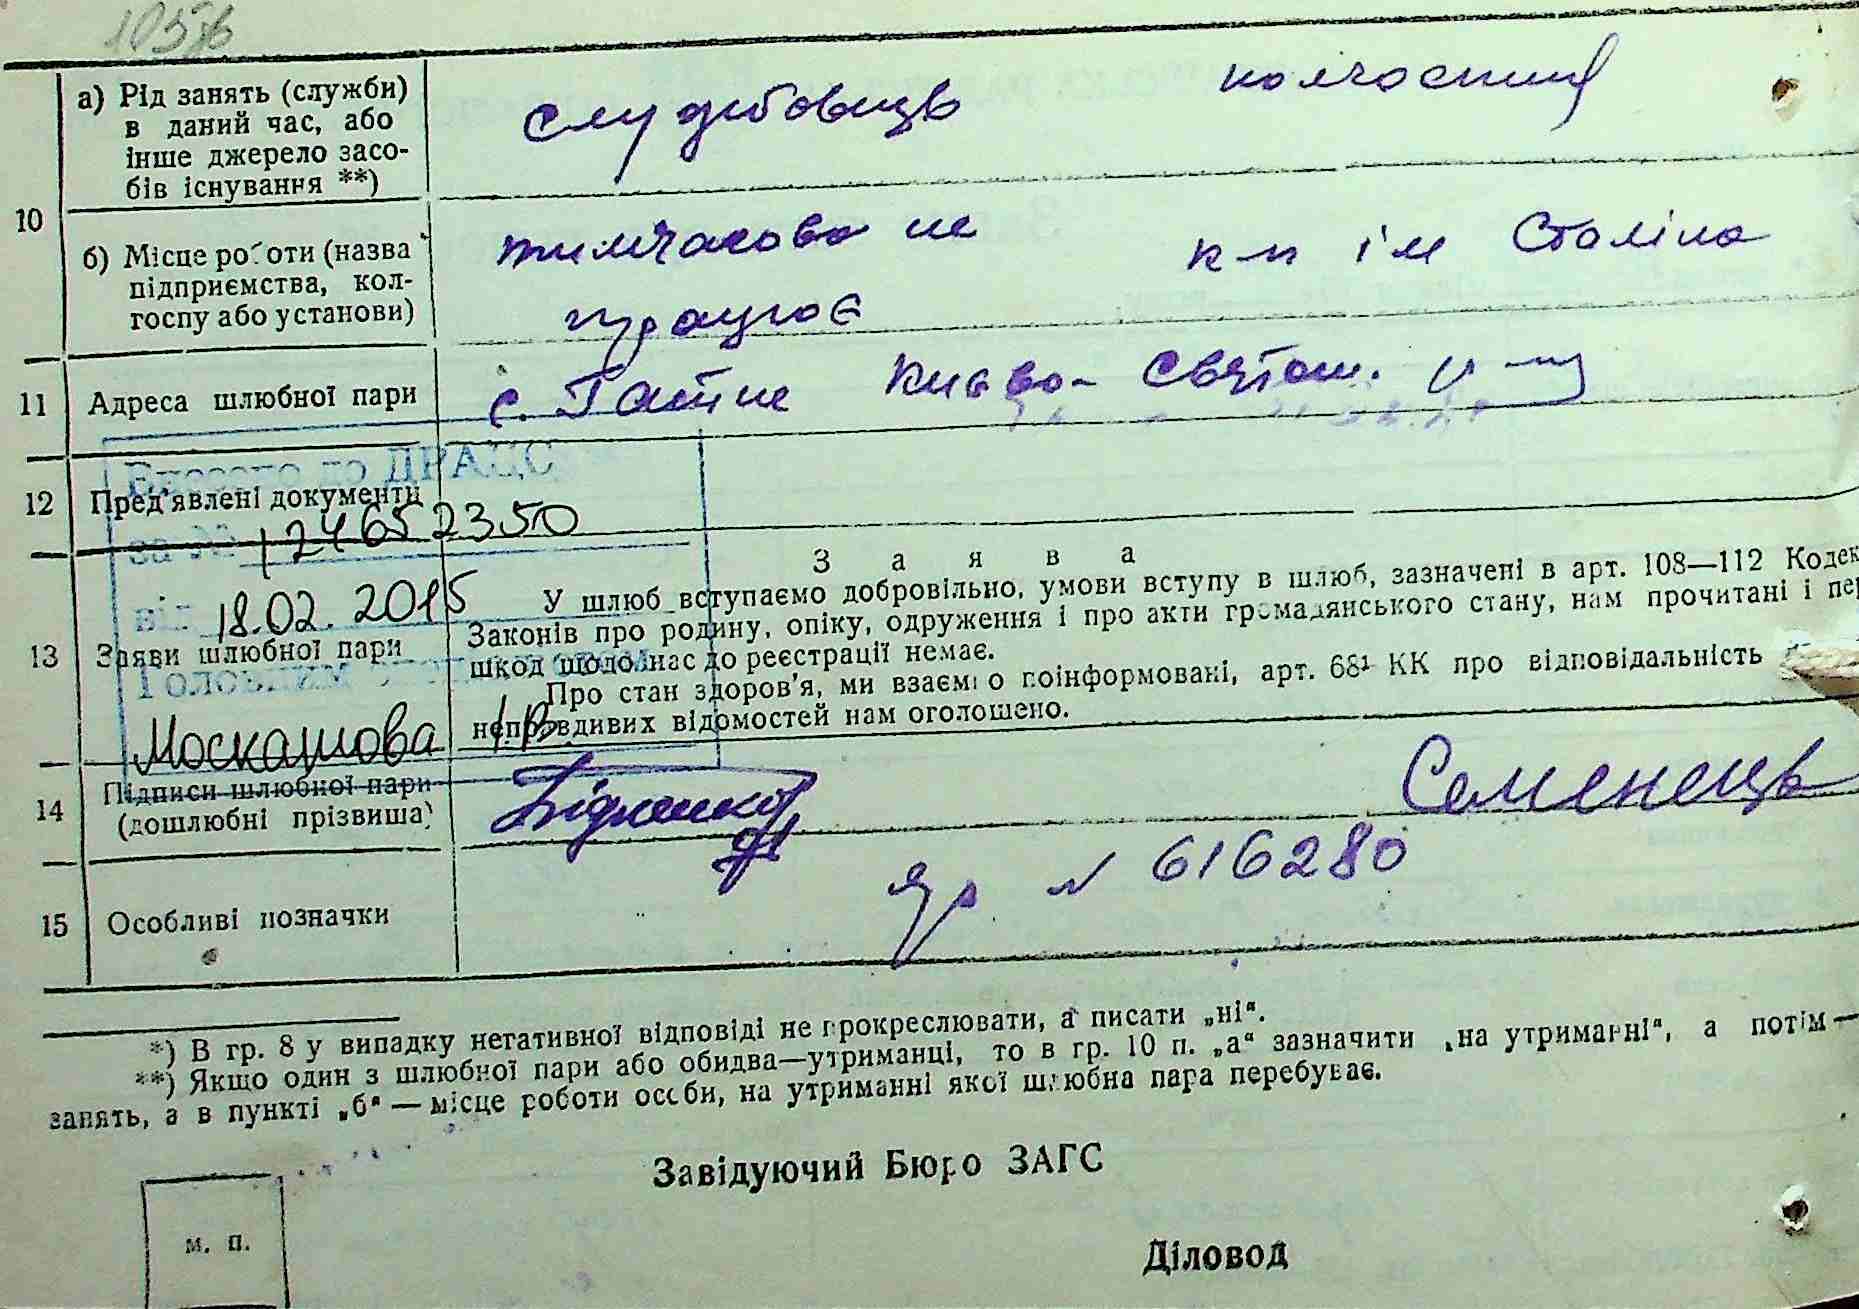 105зв
10
а) Рід занять (служби)
в даний час, або
інше джерело засо-
бів існування **)
службовець
колгоспниця
б) Місце роботи (назва
підприємства, кол-
госпу або установи)
тимчасово не
працює
к-п ім Сталіна
11
Адреса шлюбної пари
с. Гатне Києво-Святош. р-ну
12
Пред'явлені документи
Внесено до ДРАЦС
за № 124652350
від 18.02.2015
Москашова І.В.
13
Заяви шлюбної пари
Заява
У шлюб вступаємо добровільно, умови вступу в шлюб, зазначені в арт. 108—112 Кодек
Законів про родину, опіку, одруження і про акти громадянського стану, нам прочитані і пер
шкод щодо нас до реєстрації немає.
Про стан здоров'я, ми взаємно поінформовані, арт. 68¹ КК про відповідальність
неправдивих відомостей нам оголошено.
14
Підписи шлюбної пари
(дошлюбні прізвища)
Семенець
15
Особливі позначки
№ 616280
*) В гр. 8 у випадку негативної відповіді не прокреслювати, а писати „ні".
**) Якщо один з шлюбної пари або обидва—утриманці, то в гр. 10 п. „а" зазначити „на утриманні", а потім—
занять, а в пункті „б" — місце роботи особи, на утриманні якої шлюбна пара перебуває.
Завідуючий Бюро ЗАГС
м. п.
Діловод